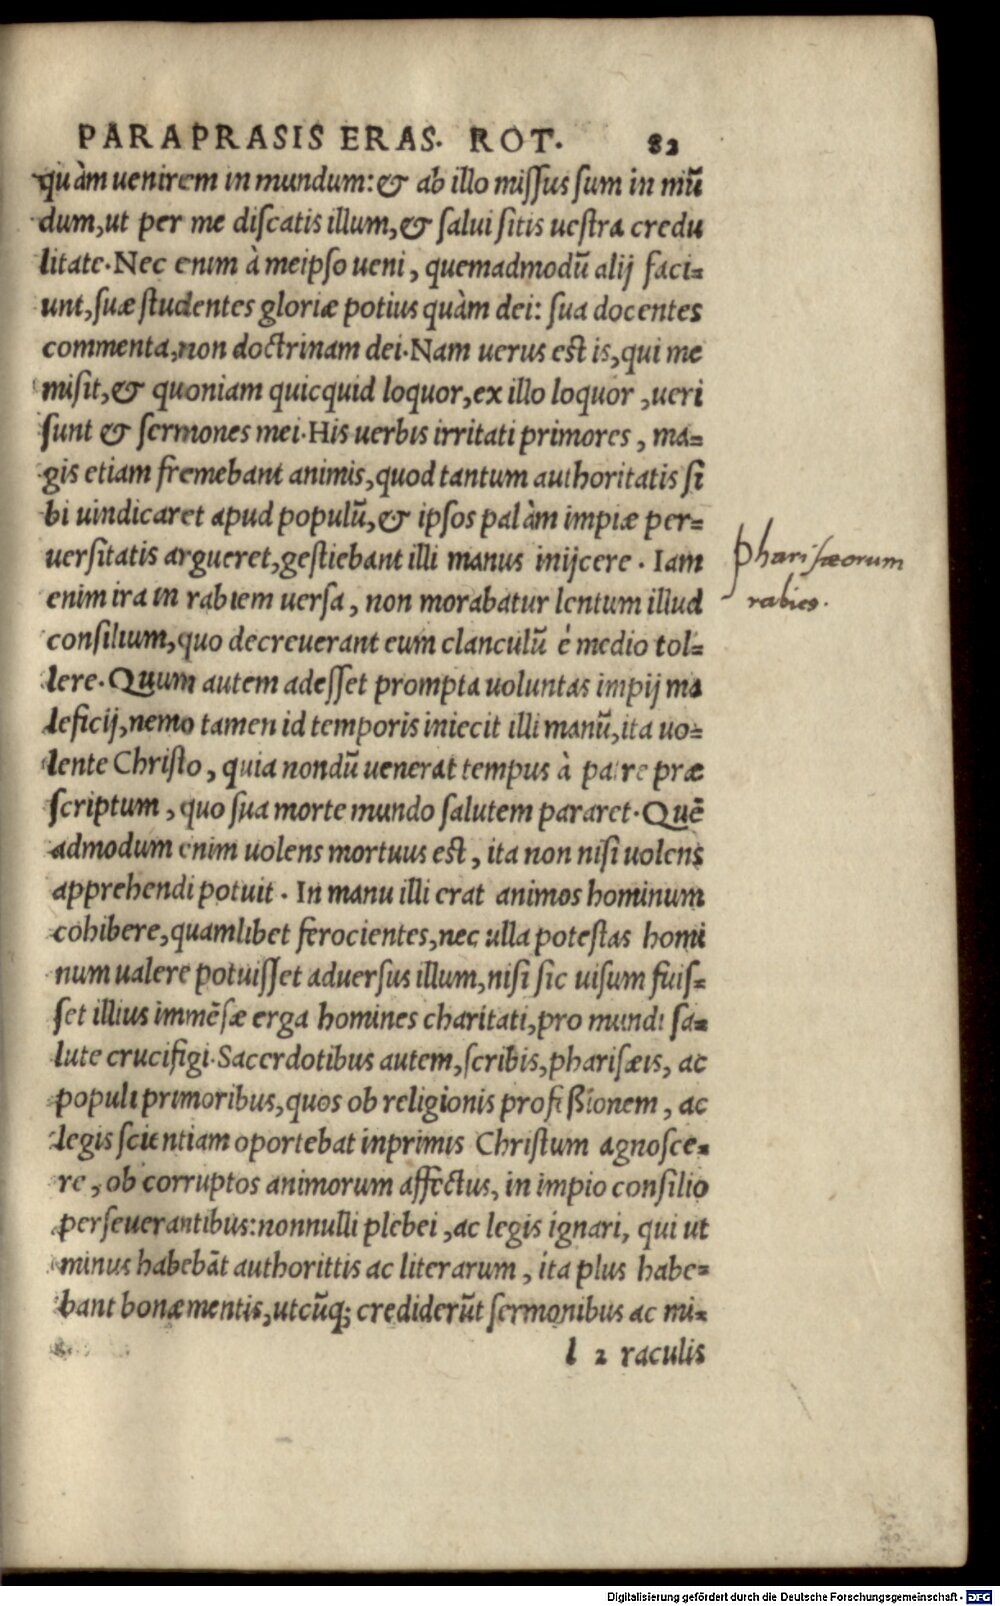 PARAPRASIS ERAS. ROT. 82
quàm uenirem in mundum: & ab illo missus sum in mũ
dum, ut per me discatis illum, & salui sitis uestra credu
litate. Nec enim à meipso ueni, quemadmodũ alij faci-
unt, suæ studentes gloriæ potius quàm dei: sua docentes
commenta, non doctrinam dei. Nam uerus est is, qui me
misit, & quoniam quicquid loquor, ex illo loquor, ueri
sunt & sermones mei. His uerbis irritati primores, ma-
gis etiam fremebant animis, quod tantum authoritatis si
bi uindicaret apud populũ, & ipsos palàm impiæ per-
uersitatis argueret, gestiebant illi manus inijcere. Iam
enim ira in rabiem uersa, non morabatur lentum illud
consilium, quo decreuerant eum clanculũ è medio tol-
lere. Quum autem adesset prompta uoluntas impij ma
leficij, nemo tamen id temporis iniecit illi manũ, ita uo-
lente Christo, quia nondũ uenerat tempus à patre præ
scriptum, quo sua morte mundo salutem pararet. Quẽ
admodum enim uolens mortuus est, ita non nisi uolens
apprehendi potuit. In manu illi erat animos hominum
cohibere, quamlibet ferocientes, nec ulla potestas homi
num ualere potuisset aduersus illum, nisi sic uisum fuis-
set illius immẽsæ erga homines charitati, pro mundi sa-
lute crucifigi. Sacerdotibus autem, scribis, pharisæis, ac
populi primoribus, quos ob religionis profeßionem, ac
legis scientiam oportebat inprimis Christum agnosce-
re, ob corruptos animorum affectus, in impio consilio
perseuerantibus: nonnulli plebei, ac legis ignari, qui ut
minus habebãt authorittis ac literarum, ita plus habe-
bant bonæ mentis, utcũq; crediderũt sermonibus ac mi-
l 2 raculis
Pharisæorum
rabies.
Digitalisierung gefördert durch die Deutsche Forschungsgemeinschaft - DFG